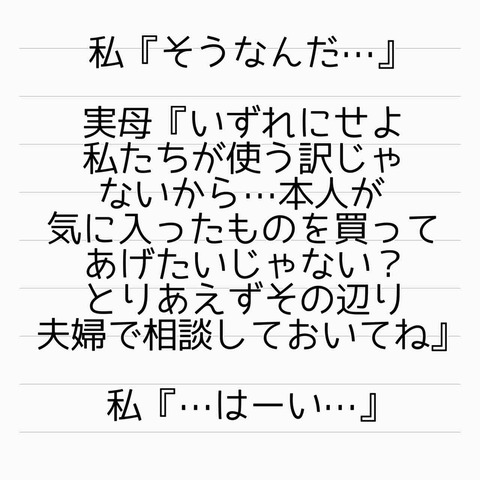 私『そうなんだ…』
実母『いずれにせよ
私たちが使う訳じゃ
ないから…本人が
気に入ったものを買って
あげたいじゃない？
とりあえずその辺り
夫婦で相談しておいてね』
私『…はーい…』